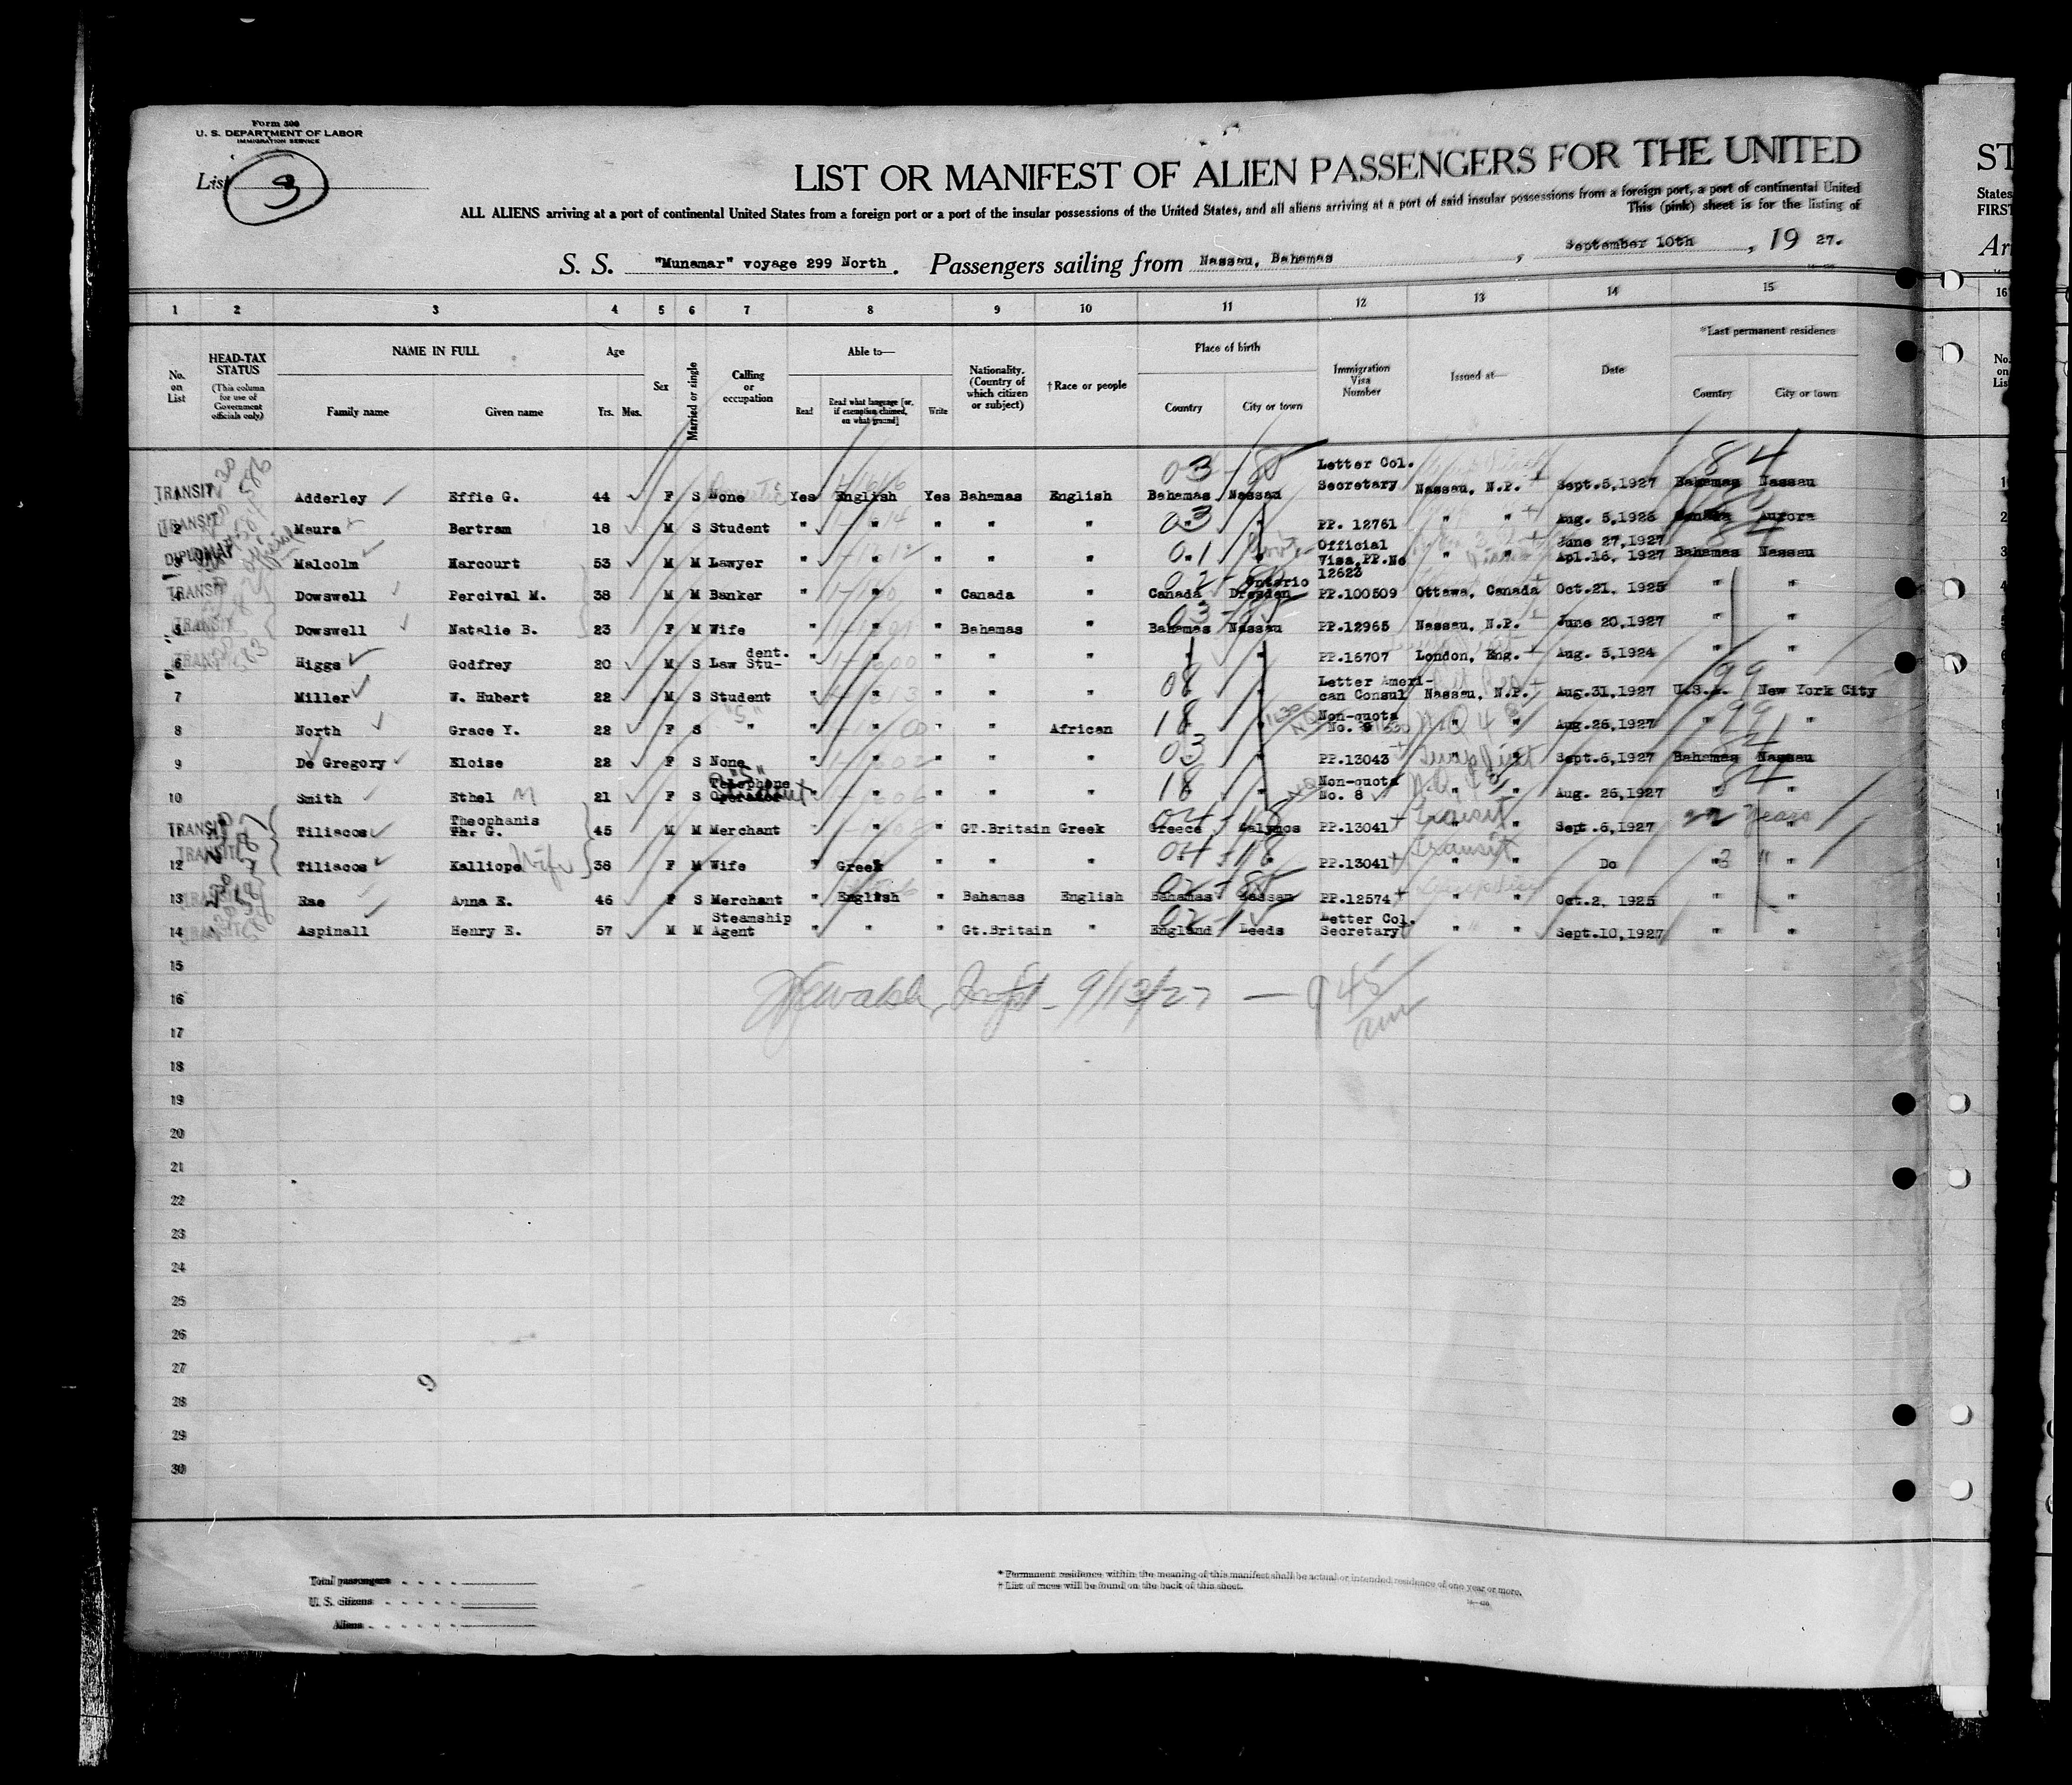 Form 500
U. S. DEPARTMENT OF LABOR
IMMIGRATION SERVICE
List 3
LIST OR MANIFEST OF ALIEN PASSENGERS FOR THE UNITED
ST
ALL ALIENS arriving at a port of continental United States from a foreign port or a port of the insular possessions of the United States, and all aliens arriving at a port of said insular possessions from a foreign port, a port of continental United
States
This (pink) sheet is for the listing of
FIRST
S. S. "Munamar" voyage 299 North. Passengers sailing from Nassau, Bahamas, September 10th, 19 27.
Ar
1 2 3 4 5 6 7 8 9 10 11 12 13 14 15 16
No. on List HEAD-TAX STATUS (This column for use of Government officials only) NAME IN FULL Family name Given name Age Yrs. Mos. Sex Married or single Calling or occupation Able to— Read Read what language [or, if exemption claimed, on what ground] Write Nationality. (Country of which citizen or subject) †Race or people Place of birth Country City or town Immigration Visa Number Issued at— Date *Last permanent residence Country City or town No. on List
TRANSIT Adderley Effie G. 44 F S None Yes English Yes Bahamas English Bahamas Nassau Letter Col. Secretary Nassau, N.P. Sept.5,1927 Bahamas Nassau
TRANSIT 2 Maura Bertram 18 M S Student " " " " " " " PP. 12761 " " Aug. 5,1926 Canada Aurora
DIPLOMAT 3 Malcolm Harcourt 53 M M Lawyer " " " " " " " Official Visa,PP.No 12623 " " June 27,1927 Apl.16, 1927 Bahamas Nassau
TRANSIT 4 Dowswell Percival M. 38 M M Banker " " " Canada " Canada Ontario Dresden PP.100509 Ottawa, Canada Oct.21, 1925 " "
TRANSIT 5 Dowswell Natalie B. 23 F M Wife " " " Bahamas " Bahamas Nassau PP.12965 Nassau, N.P. June 20,1927 " "
TRANSIT 6 Higgs Godfrey 20 M S Law Student. " " " " " " " PP.16707 London, Eng. Aug. 5,1924 " "
7 Miller W. Hubert 22 M S Student " " " " " " " Letter American Consul Nassau, N.P. Aug.31,1927 U.S.A. New York City
8 North Grace Y. 22 F S " " " " " African " " Non-quota No. " " Aug.26,1927 " "
9 De Gregory Eloise 22 F S None " " " " " " " PP.13043 " " Sept.6,1927 Bahamas Nassau
10 Smith Ethel M 21 F S Telephone Operator " " " " " " " Non-quota No. 8 " " Aug. 26,1927 " "
TRANSIT Tiliacos Theophanis Th. G. 45 M M Merchant " " " GT.Britain Greek Greece Kalymos PP.13041 Transit " " Sept.6,1927 " "
TRANSIT 12 Tiliacos Kalliope Wife 38 F M Wife " Greek " " " " " PP.13041 Transit " " Do " "
13 Rae Anna E. 46 F S Merchant " English " Bahamas English Bahamas Nassau PP.12574 " " Oct.2, 1925 " "
14 Aspinall Henry E. 57 M M Steamship Agent " " " Gt.Britain " England Leeds Letter Col. Secretary " " Sept.10,1927 " "
15
16 9/13/27 — 9 45 am
17
18
19
20
21
22
23
24
25
26
27
28
29
30
Total passengers
U. S. citizens
Aliens
* Permanent residence within the meaning of this manifest shall be actual or intended residence of one year or more.
† List of races will be found on the back of this sheet.